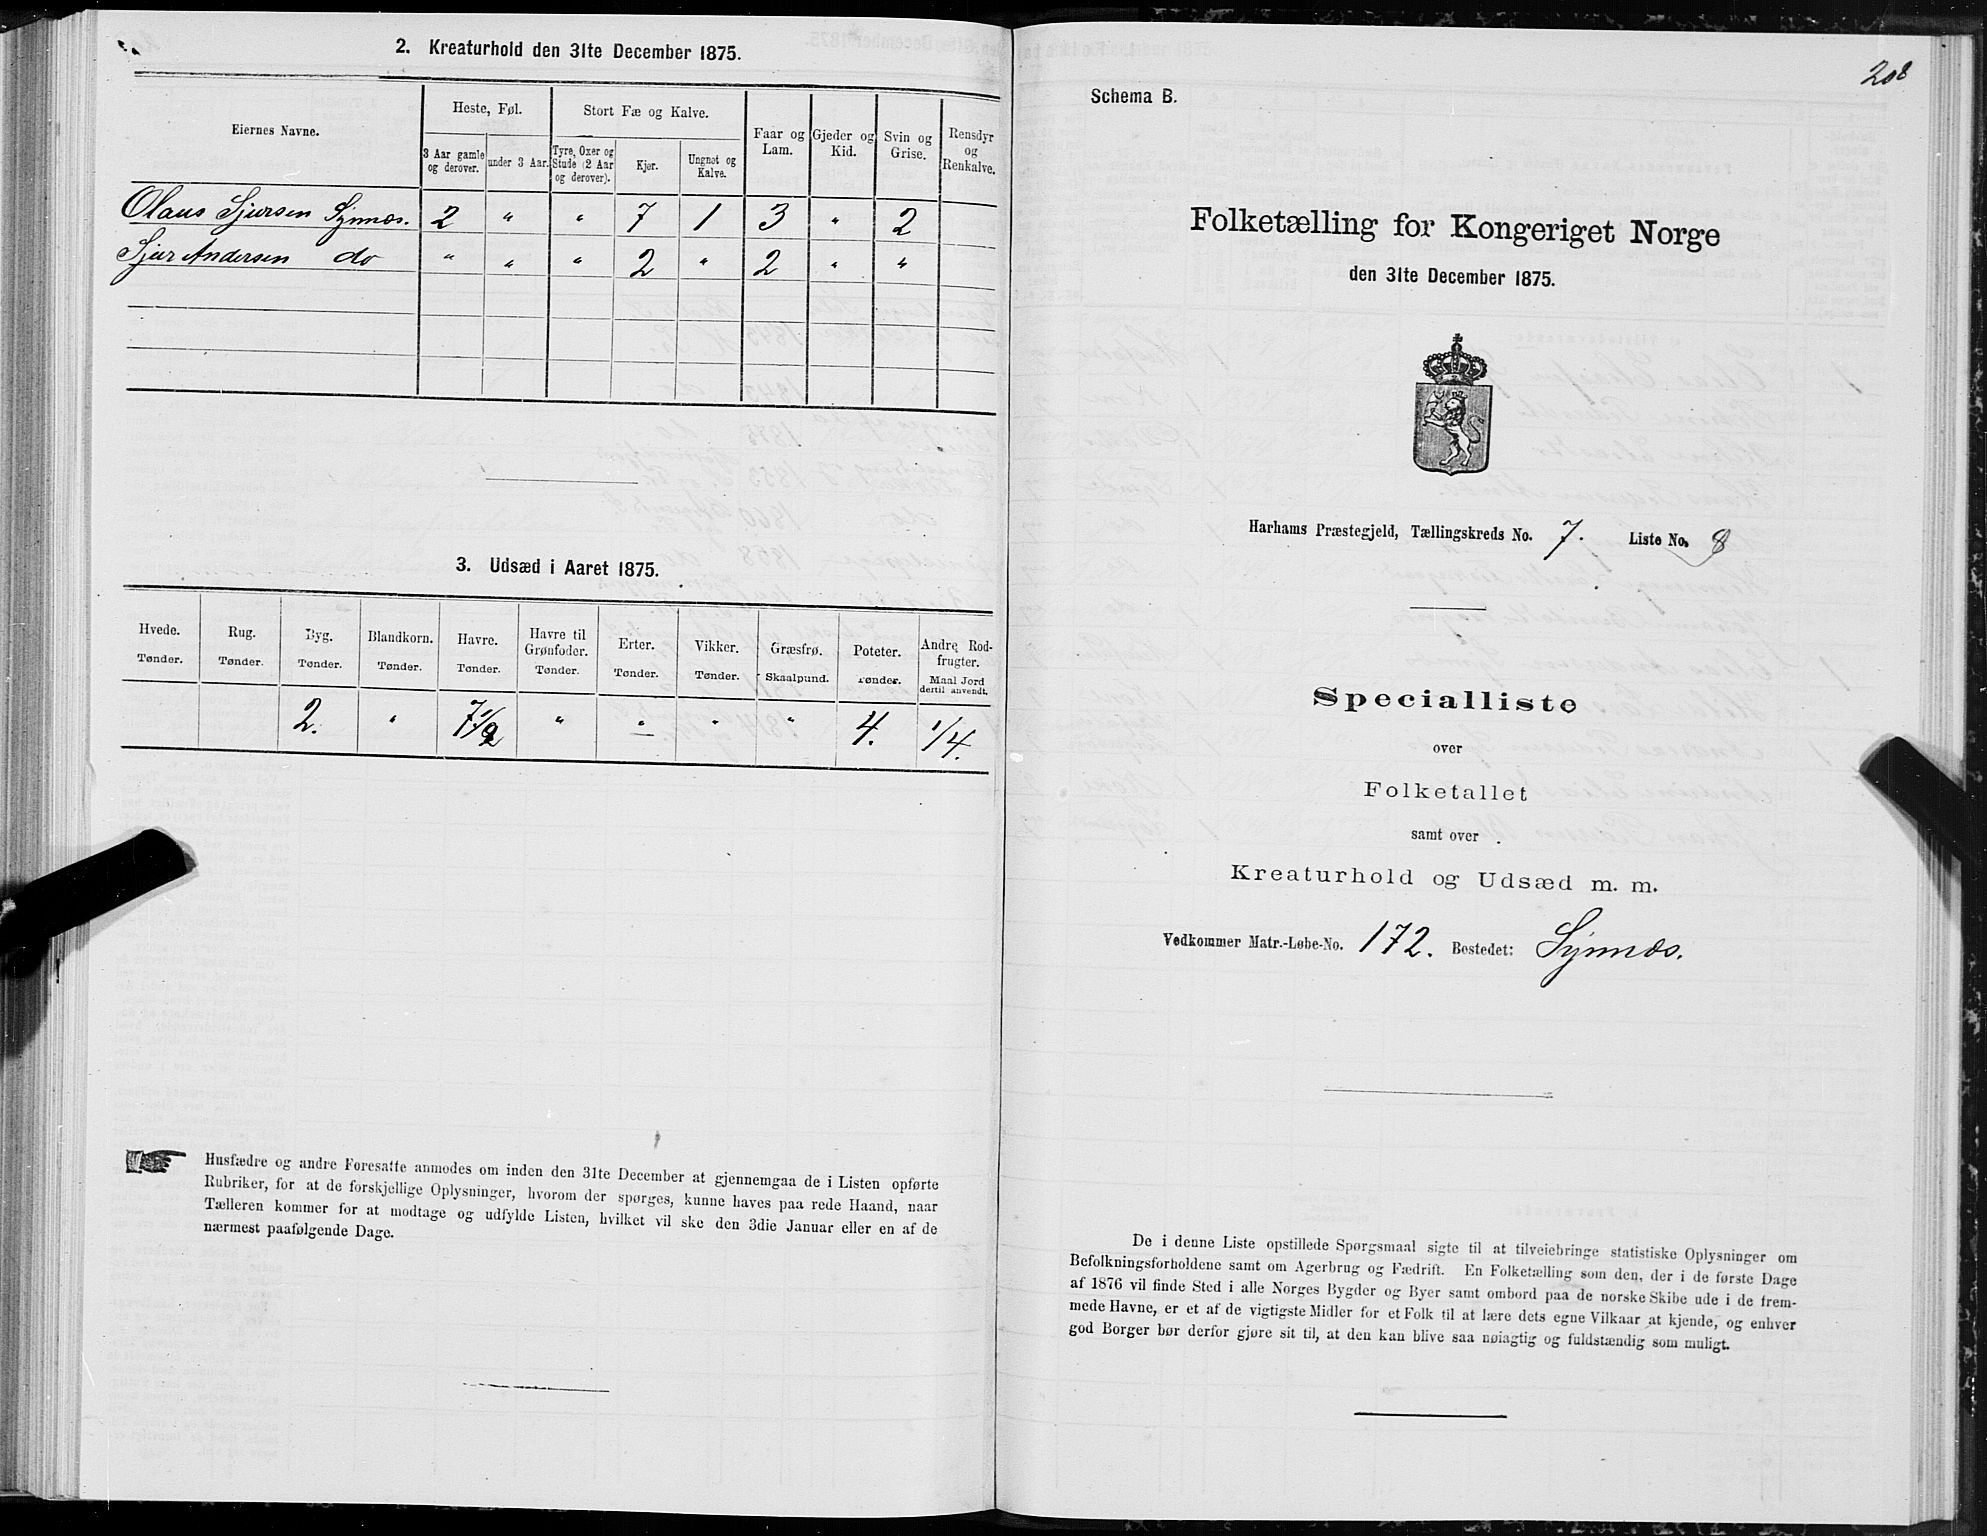 2. Kreaturhold den 31te December 1875.
Eiernes Navne.
Heste, Føl.
Stort Fæ og Kalve.
Faar og Lam.
Gjeder og Kid.
Svin og Grise.
Rensdyr og Renkalve.
3 Aar gamle og derover.
under 3 Aar.
Tyre, Oxer og Stude (2 Aar og derover).
Kjør.
Ungnøt og Kalve.
Olaus Sjursen Synnæs. 2 " " 7 1 3 " 2
Sjur Andersen do " " " 2 " 2 " "
3. Udsæd i Aaret 1875.
Hvede. Rug. Byg. Blandkorn. Havre. Havre til Grønfoder. Erter. Vikker. Græsfrø. Poteter. Andre Rodfrugter.
Tønder. Tønder. Tønder. Tønder. Tønder. Tønder. Tønder. Tønder. Skaalpund. Tønder. Maal Jord dertil anvendt.
2. " 7 1/2 " " " " 4. 1/4.
Husfædre og andre Foresatte anmodes om inden den 31te December at gjennemgaa de i Listen opførte
Rubriker, for at de forskjellige Oplysninger, hvorom der spørges, kunne haves paa rede Haand, naar
Tælleren kommer for at modtage og udfylde Listen, hvilket vil ske den 3die Januar eller en af de
nærmest paafølgende Dage.
208
Schema B.
Folketælling for Kongeriget Norge
den 31te December 1875.
Harhams Præstegjeld, Tællingskreds No. 7. Liste No. 8
Specialliste
over
Folketallet
samt over
Kreaturhold og Udsæd m. m.
Vedkommer Matr.-Løbe-No. 172. Bostedet: Synnæs.
De i denne Liste opstillede Spørgsmaal sigte til at tilveiebringe statistiske Oplysninger om
Befolkningsforholdene samt om Agerbrug og Fædrift. En Folketælling som den, der i de første Dage
af 1876 vil finde Sted i alle Norges Bygder og Byer samt ombord paa de norske Skibe ude i de frem-
mede Havne, er et af de vigtigste Midler for et Folk til at lære dets egne Vilkaar at kjende, og enhver
god Borger bør derfor gjøre sit til, at den kan blive saa nøiagtig og fuldstændig som muligt.